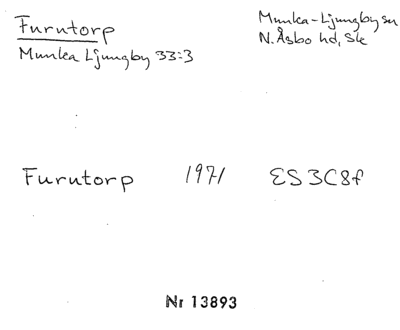 Furutorp
Munka Ljungby 33:3
Munka-Ljungby sn
N. Åsbo hd, Sk
Furutorp 1971 ES3C8f
Nr 13893